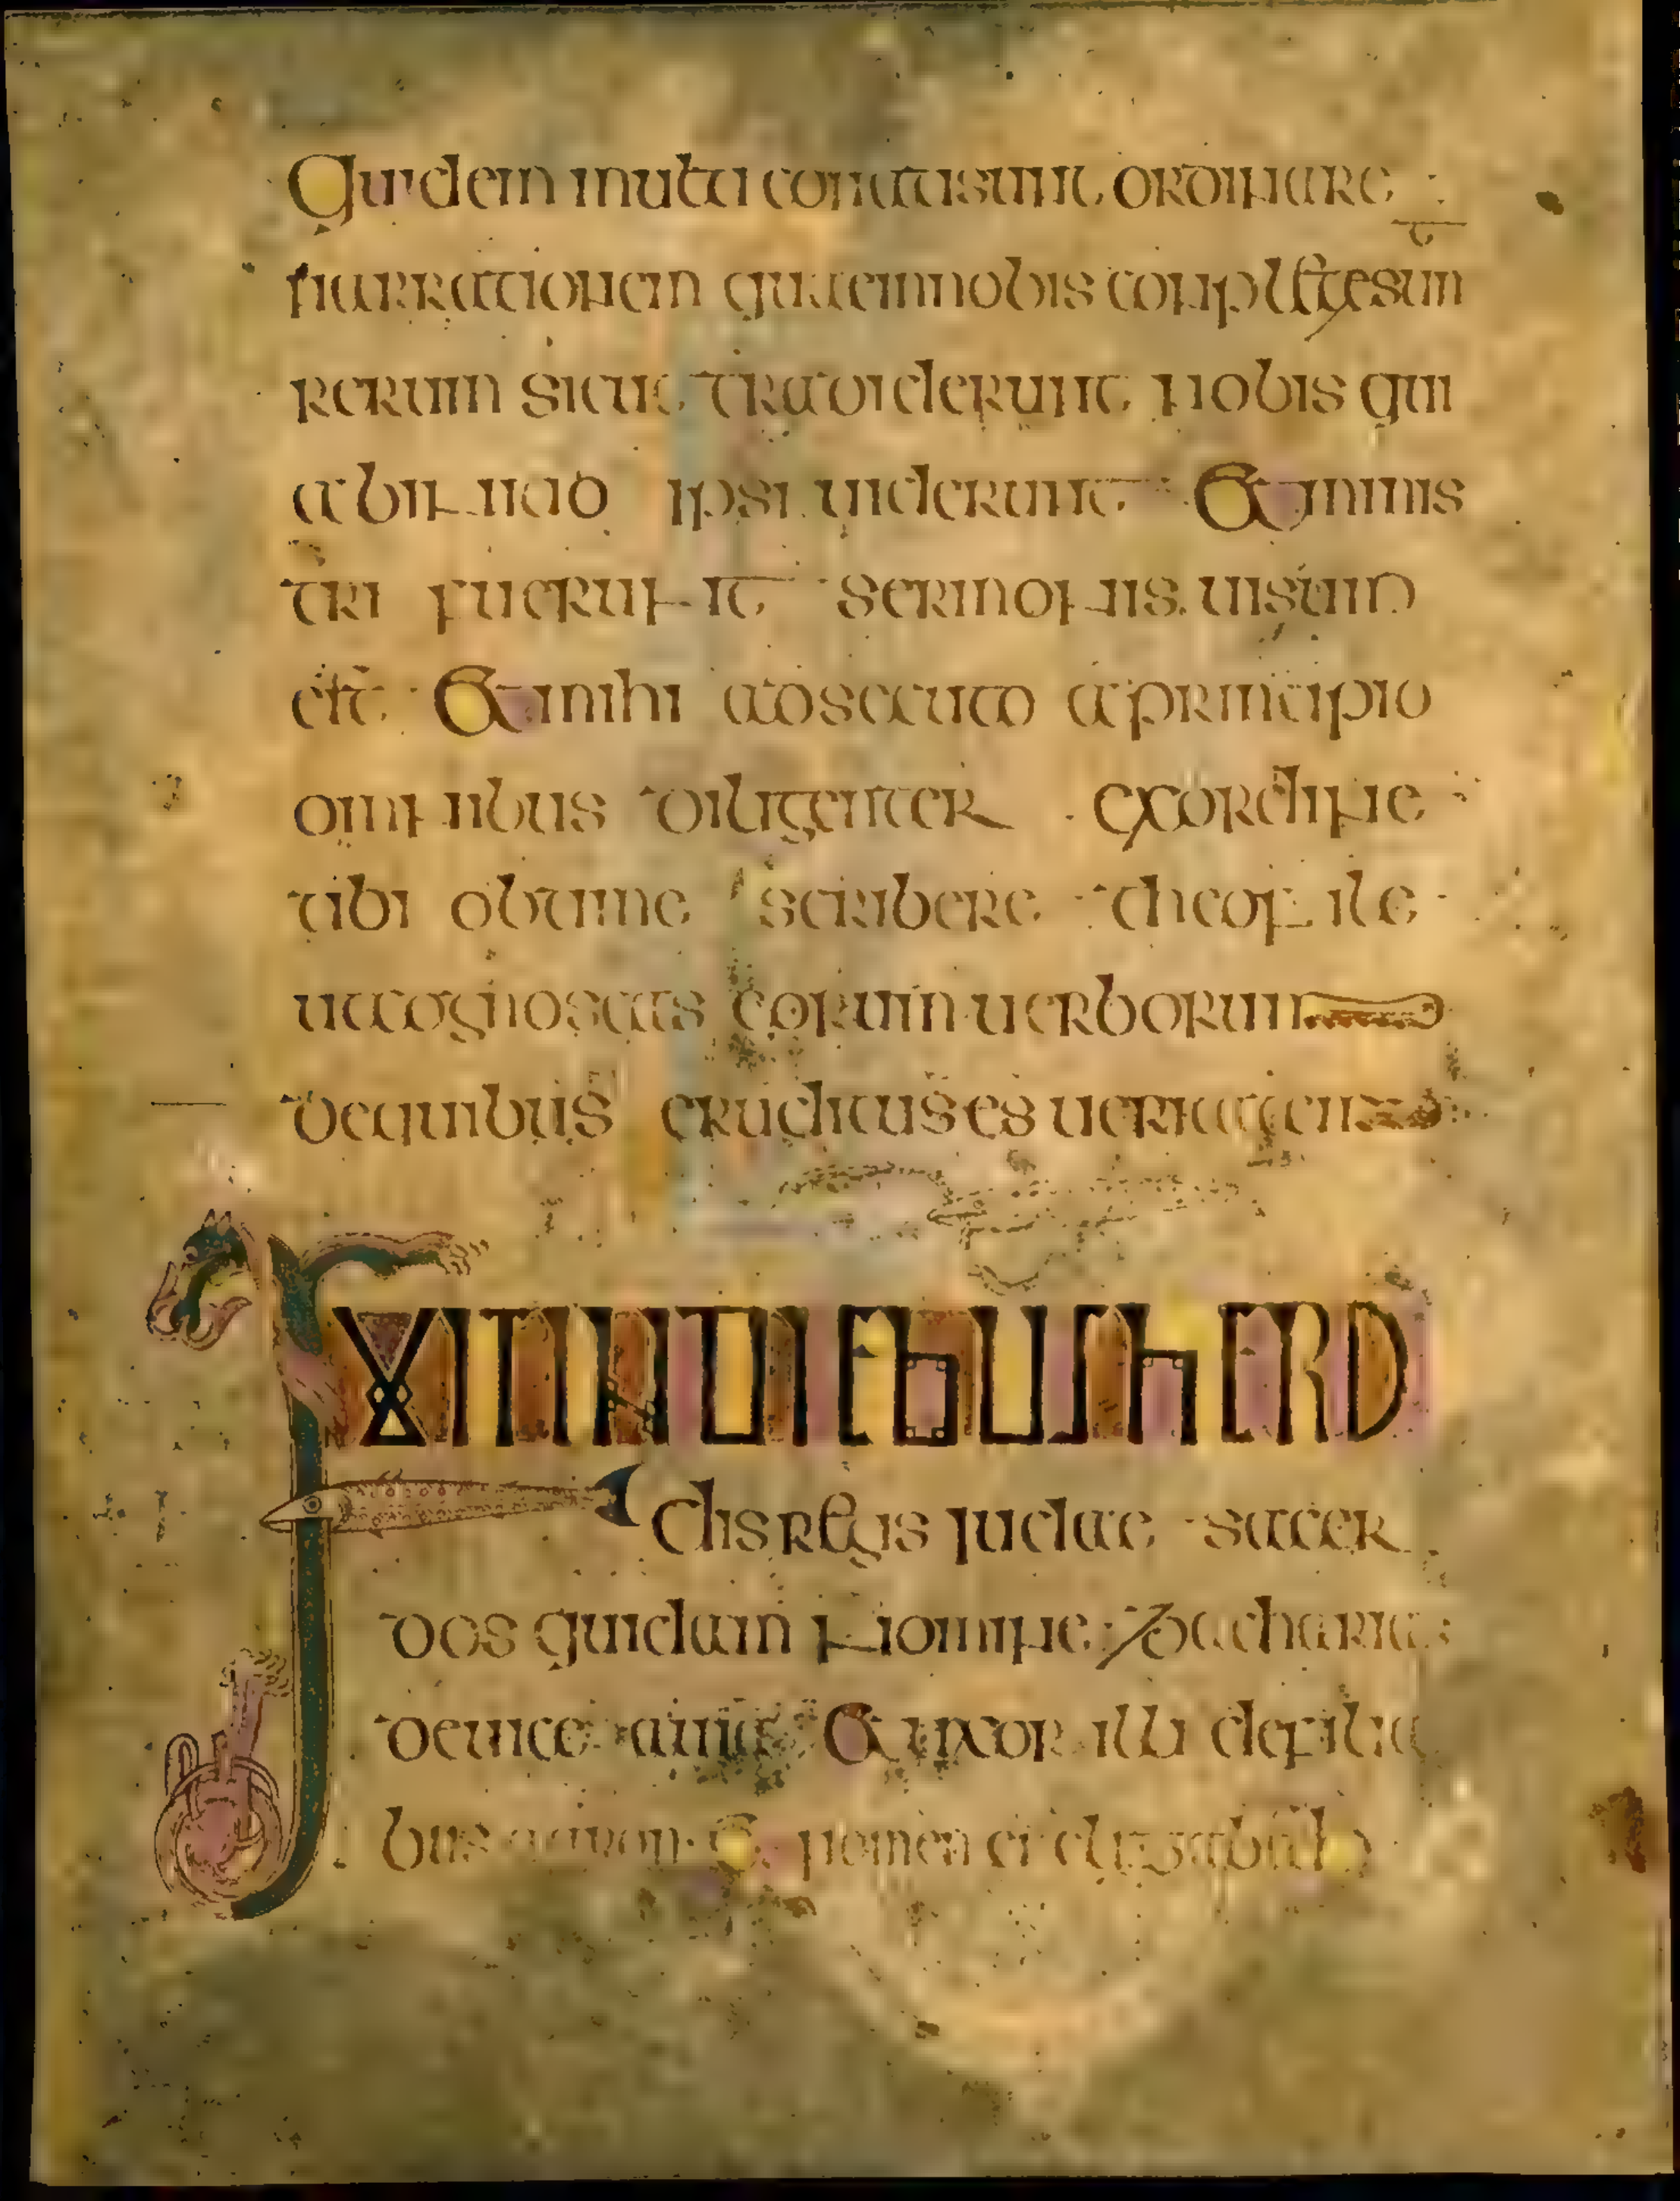 Quidem multi conatisunt ordinare
narrationem quaeinnobis conpletesun
t
rerum sicut tradiderunt nobis qui
abinitio ipsi uiderunt Et minis
tri fuerunt sermonis uisum
est Et mihi adsecuto aprincipio
omnibus diligenter exordine
tibi obtime scribere theofile
utcognoscas eorum uerborum
dequibus eruditus es ueritatem
FUITINDIEBUSHERO
dis regis iudae sacer
dos quidam nomine zacharias
deuice auia Et uxor illi defilia
bus aaron Et nomen ei elizabeth